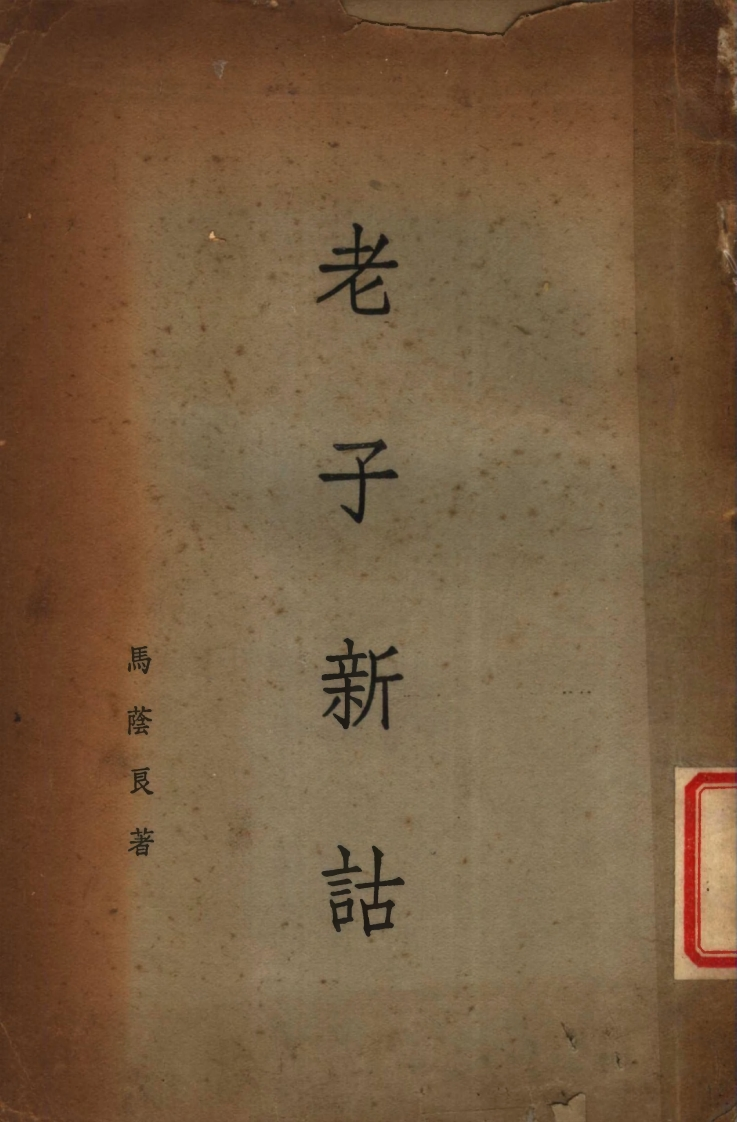 老子新詁
馬蔭良著